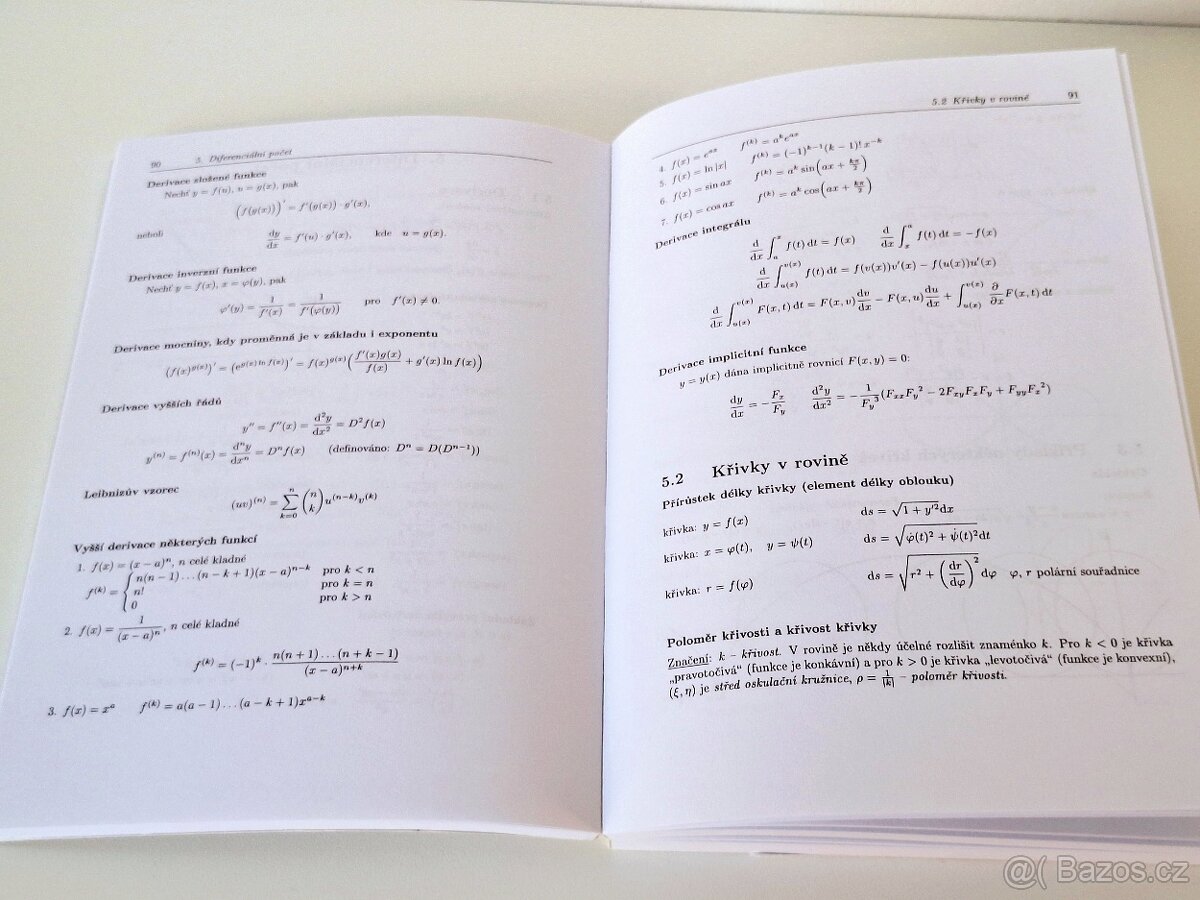 90 5. Diferenciální počet
Derivace složené funkce
Nechť y = f(u), u = g(x), pak
(f(g(x)))′ = f′(g(x)) · g′(x),
neboli dy/dx = f′(u) · g′(x), kde u = g(x).
Derivace inverzní funkce
Nechť y = f(x), x = φ(y), pak
φ′(y) = 1/f′(x) = 1/f′(φ(y)) pro f′(x) ≠ 0.
Derivace mocniny, kdy proměnná je v základu i exponentu
(f(x)^{g(x)})′ = (e^{g(x) ln f(x)})′ = f(x)^{g(x)}(f′(x)g(x)/f(x) + g′(x) ln f(x))
Derivace vyšších řádů
y″ = f″(x) = d²y/dx² = D²f(x)
y^{(n)} = f^{(n)}(x) = dⁿy/dxⁿ = Dⁿf(x) (definováno: Dⁿ = D(Dⁿ⁻¹))
Leibnizův vzorec
(uv)^{(n)} = ∑_{k=0}^{n} (n k) u^{(n−k)}v^{(k)}
Vyšší derivace některých funkcí
1. f(x) = (x − a)ⁿ, n celé kladné
f^{(k)} = { n(n − 1) … (n − k + 1)(x − a)^{n−k} pro k < n
n! pro k = n
0 pro k > n
2. f(x) = 1/(x − a)ⁿ, n celé kladné
f^{(k)} = (−1)^k · n(n + 1) … (n + k − 1)/(x − a)^{n+k}
3. f(x) = x^a f^{(k)} = a(a − 1) … (a − k + 1)x^{a−k}
5.2 Křivky v rovině 91
4. f(x) = e^{ax} f^{(k)} = a^k e^{ax}
5. f(x) = ln |x| f^{(k)} = (−1)^{k−1}(k − 1)! x^{−k}
6. f(x) = sin ax f^{(k)} = a^k sin(ax + kπ/2)
7. f(x) = cos ax f^{(k)} = a^k cos(ax + kπ/2)
Derivace integrálu
d/dx ∫_a^x f(t) dt = f(x) d/dx ∫_x^a f(t) dt = −f(x)
d/dx ∫_{u(x)}^{v(x)} f(t) dt = f(v(x))v′(x) − f(u(x))u′(x)
d/dx ∫_{u(x)}^{v(x)} F(x, t) dt = F(x, v) dv/dx − F(x, u) du/dx + ∫_{u(x)}^{v(x)} ∂/∂x F(x, t) dt
Derivace implicitní funkce
y = y(x) dána implicitně rovnicí F(x, y) = 0:
dy/dx = −F_x/F_y d²y/dx² = −1/F_y³ (F_{xx}F_y² − 2F_{xy}F_xF_y + F_{yy}F_x²)
5.2 Křivky v rovině
Přírůstek délky křivky (element délky oblouku)
křivka: y = f(x) ds = √(1 + y′²)dx
křivka: x = φ(t), y = ψ(t) ds = √(φ̇(t)² + ψ̇(t)²)dt
křivka: r = f(φ) ds = √(r² + (dr/dφ)²) dφ φ, r polární souřadnice
Poloměr křivosti a křivost křivky
Značení: k – křivost. V rovině je někdy účelné rozlišit znaménko k. Pro k < 0 je křivka
„pravotočivá“ (funkce je konkávní) a pro k > 0 je křivka „levotočivá“ (funkce je konvexní),
(ξ, η) je střed oskulační kružnice, ρ = 1/|k| – poloměr křivosti.
@( Bazos.cz